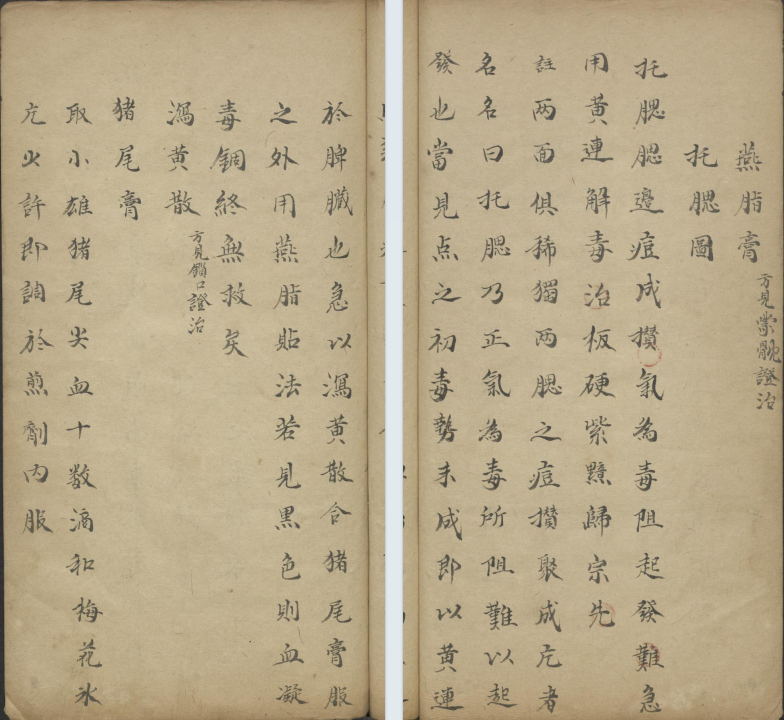 燕脂膏方見蒙骴證治
托腮圖
托腮腮邊痘成攅氣為毒阻起發難急
用黃連解毒治板硬紫黯歸宗先
註两面俱稀獨两腮之痘攅聚成片者
名名曰托腮乃正氣為毒所阻難以起
發也當見点之初毒勢未成即以黃連
於脾臟也急以瀉黃散合猪尾膏服
之外用燕脂貼法若見黒色則血凝
毒錮終無救矣
瀉黃散方見鎖口證治
猪尾膏
取小雄猪尾尖血十数滴和梅花氷
片火許即調於煎劑内服